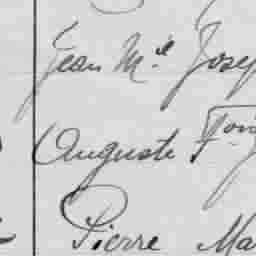 Jean M.el Josep
Auguste F
Pierre Ma